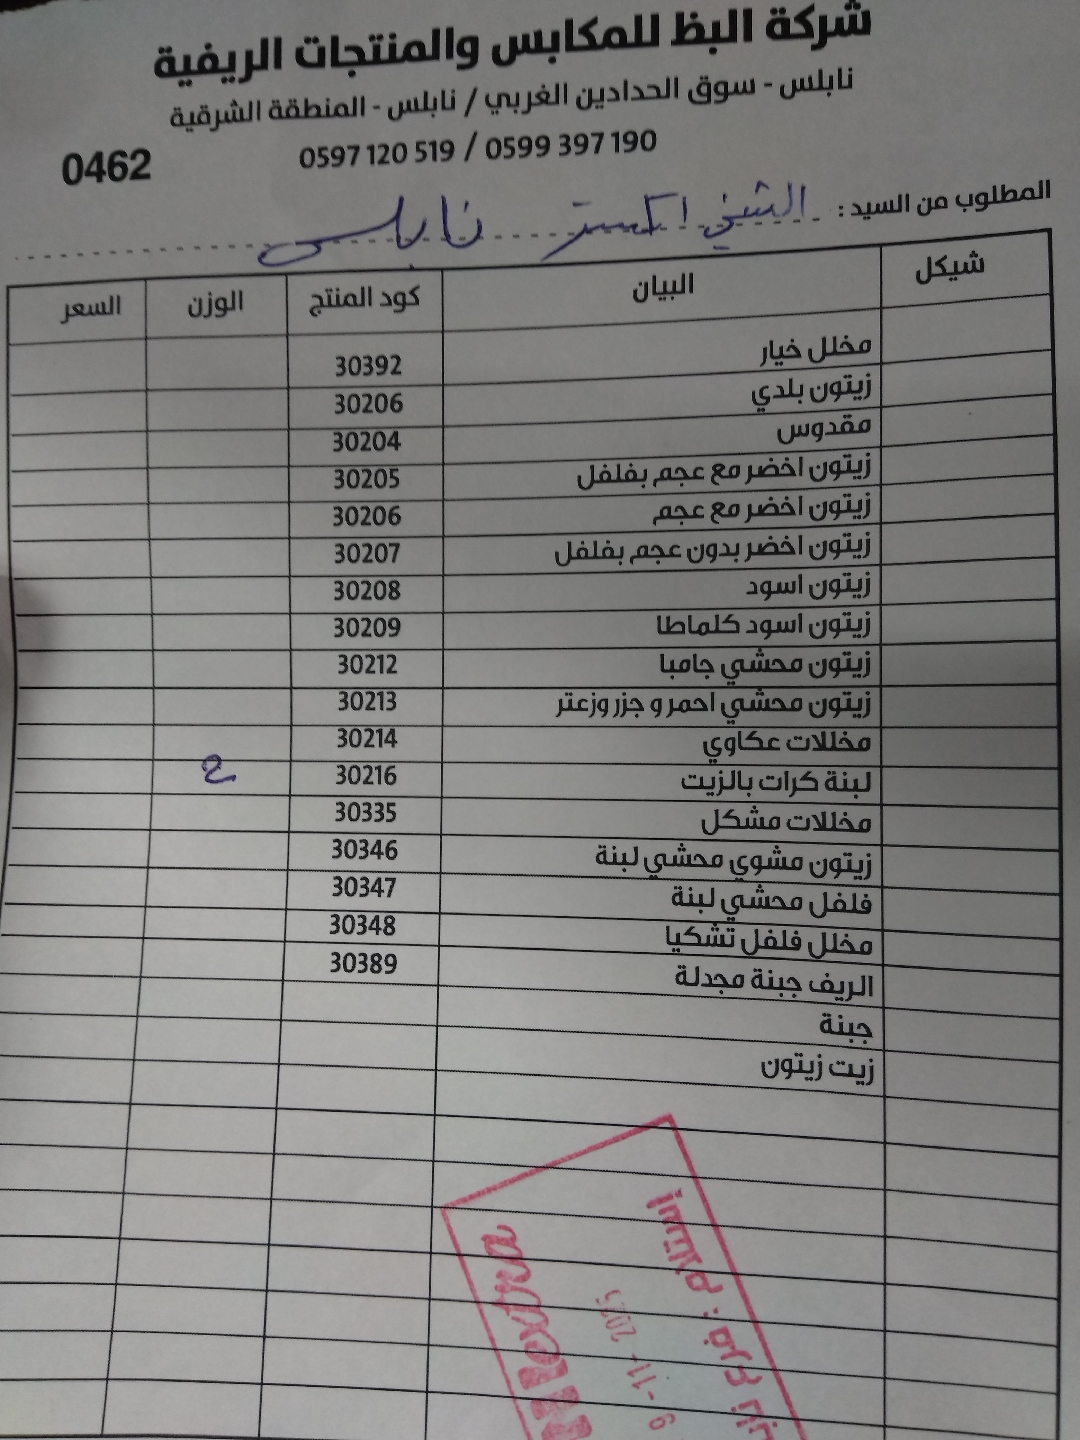 شركة البظ للمكابس والمنتجات الريفية
نابلس - سوق الحدادين الغربي / نابلس - المنطقة الشرقية
0597 120 519 / 0599 397 190
0462
المطلوب من السيد : الشني اكسترا نابلس
شيكل البيان كود المنتج الوزن السعر
مخلل خيار 30392
زيتون بلدي 30206
مقدوس 30204
زيتون اخضر مع عجم بفلفل 30205
زيتون اخضر مع عجم 30206
زيتون اخضر بدون عجم بفلفل 30207
زيتون اسود 30208
زيتون اسود كلماطا 30209
زيتون محشي جامبا 30212
زيتون محشي احمر و جزر وزعتر 30213
مخللات عكاوي 30214
لبنة كرات بالزيت 30216
مخللات مشكل 30335
زيتون مشوي محشي لبنة 30346
فلفل محشي لبنة 30347
مخلل فلفل تشكيا 30348
الريف جبنة مجدلة 30389
جبنة
زيت زيتون